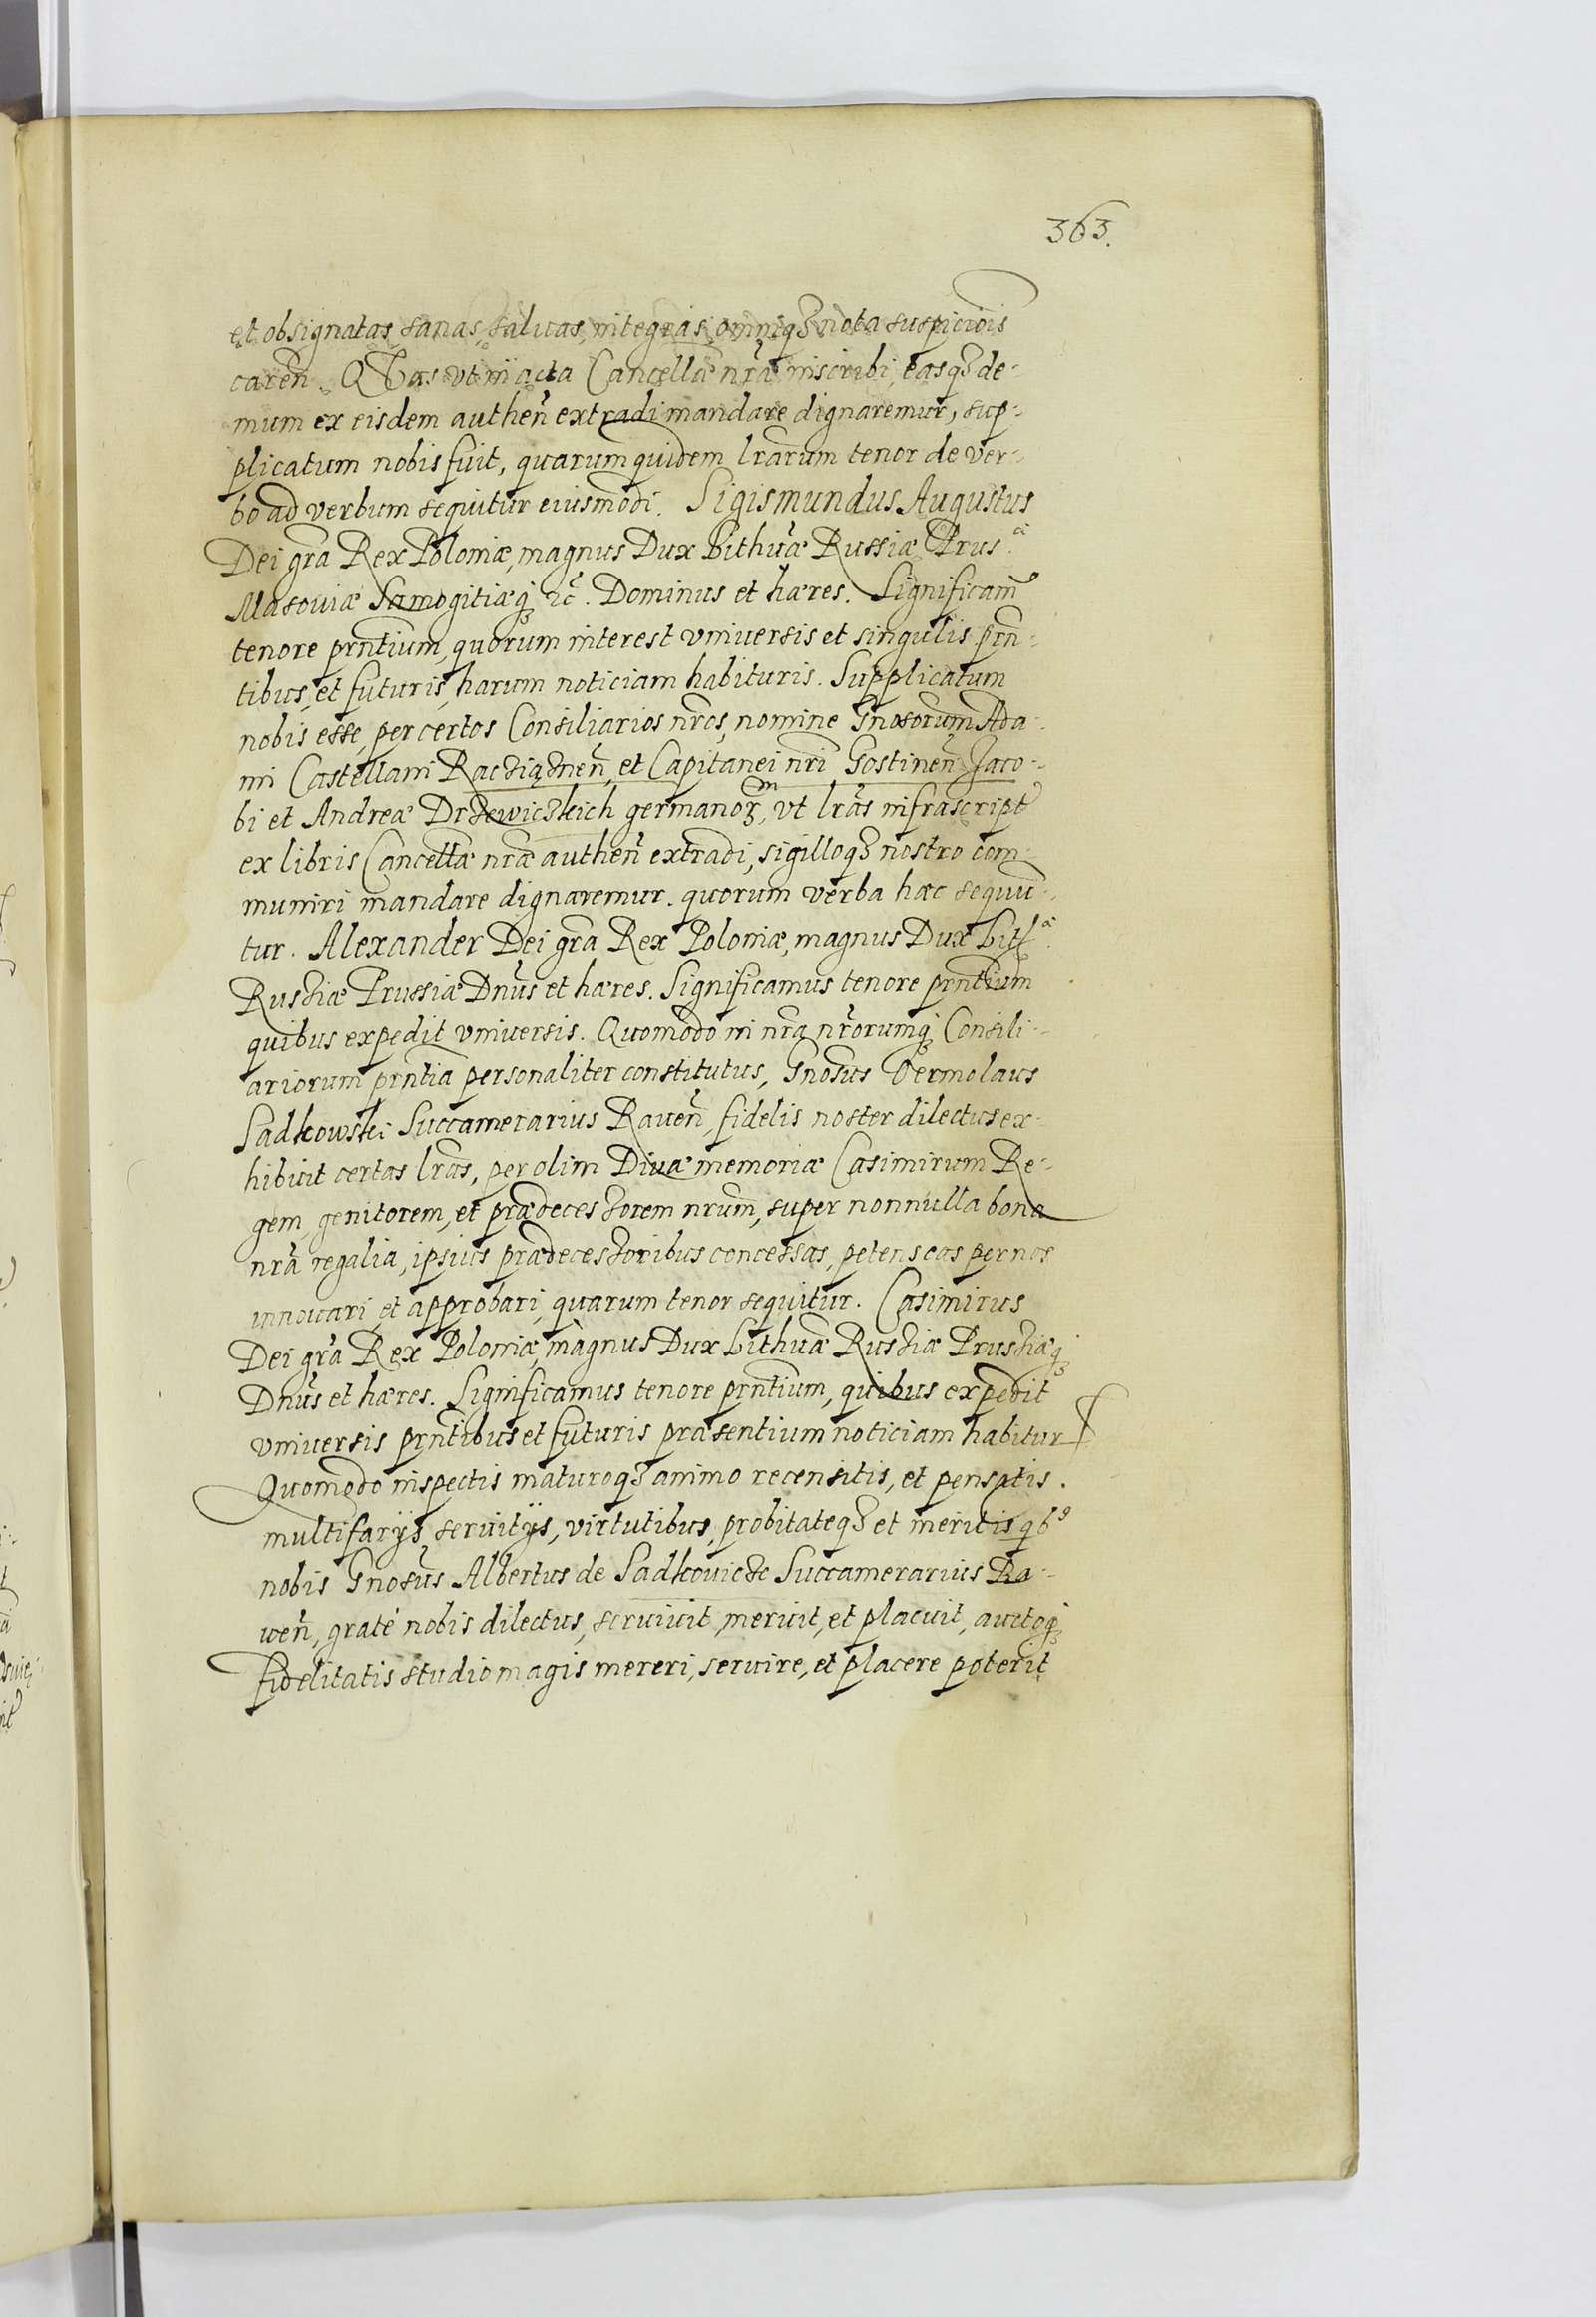 363.
et obsignatas, sanas, saluas, integras, omniq3 nota suspiciois
careñ. Q Vas vt in acta Cancellæ nræ inscribi, easq3 de-
mum ex eisdem autheñ extradi mandare dignaremur, sup-
plicatum nobis fuit, quarum quidem lrarum tenor de ver-
bo ad verbum sequitur eiusmodi. Sigismundus Augustus
Dei gra Rex Poloniæ, magnus Dux Lithuæ Russiæ Prus.æ
Masouiæ Samogitiæq3 &c. Dominus et hæres. Significam9
tenore prntium, quorum interest vniuersis et singulis prn-
tibus, et futuris, harum noticiam habituris. Supplicatum
nobis esse, per certos Consiliarios nros, nomine Gnosorum Ada-
mi Castellani Racziązneñ, et Capitanei nri Gostineñ Jaco-
bi et Andreæ Drzewiczkich germanor3, vt lras infrascript
ex libris Cancellæ nræ autheñ extradi, sigilloq3 nostro com-
muniri mandare dignaremur. quorum verba hæc sequū-
tur. Alexander Dei gra Rex Poloniæ, magnus Dux Lith.æ
Russiæ Prussiæ Dnus et hæres. Significamus tenore prntium
quibus expedit vniuersis. Quomodo in nra nrorumq3 Consili-
ariorum prntia personaliter constitutus, Gnosus Vermolaus
Sadkowski Succamerarius Raueñ, fidelis noster dilectus ex-
hibuit certas lras, per olim Diuæ memoriæ Casimirum Re-
gem, genitorem, et prædecessorem nrum, super nonnulla bona
nra regalia, ipsius prædecessoribus concessas, petens eas per nos
innouari, et approbari, quarum tenor sequitur. Casimirus
Dei gra Rex Poloniæ, magnus Dux Lithuæ Russiæ Prussiæq3
Dnus et hæres. Significamus tenore prntium, quibus expedit
vniuersis prntibus et futuris præsentium noticiam habitur
Quomodo inspectis maturoq3 animo recensitis, et pensatis.
multifarijs, seruitijs, virtutibus, probitateq3 et meritis qb9
nobis Gnosus Albertus de Sadkouicze Succamerarius Ra-
ueñ, graté nobis dilectus, seruiuit, meruit, et placuit, auctoq3
fidelitatis studio magis mereri, seruire, et placere poterit